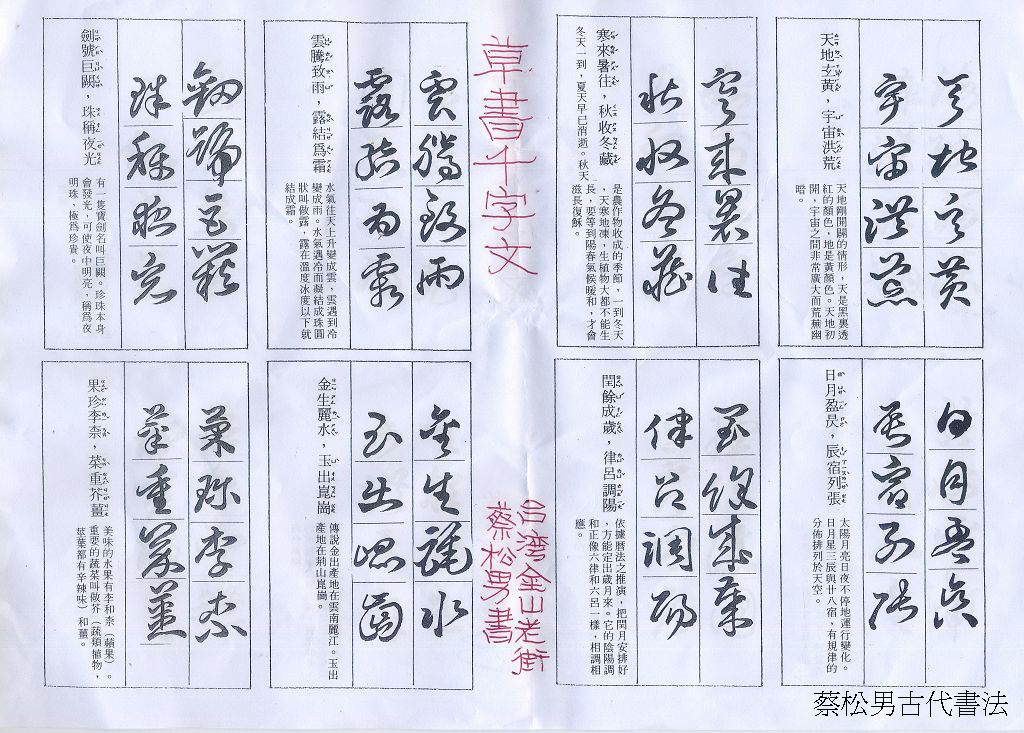 天地玄黃，宇宙洪荒
天地玄黃
宇宙洪荒
天地剛開闢的情形，天是黑裏透
紅的顏色，地是黃顏色。天地初
開，宇宙之間非常廣大而荒蕪幽
暗。
寒來暑往，秋收冬藏
寒來暑往
秋收冬藏
冬天一到，夏天早已消逝。秋天
是農作物收成的季節，一到冬天
，天寒地凍，生植物大都不能生
長，要等到陽春氣候暖和，才會
滋長復穌。
草書千字文
雲騰致雨，露結爲霜
雲騰致雨
露結為霜
水氣往天上升變成雲，雲遇到冷
變成雨。水氣遇冷而凝結成珠圓
狀叫做露，露在溫度冰度以下就
結成霜。
劍號巨闕，珠稱夜光
劍號巨闕
珠稱夜光
有一隻寶劍名叫巨闕。珍珠本身
會發光，可使夜中明亮，稱爲夜
明珠，極爲珍貴。
日月盈昃，辰宿列張
日月盈昃
辰宿列張
太陽月亮日夜不停地運行變化。
日月星三辰與廿八宿，有規律的
分佈排列於天空。
閏餘成歲，律呂調陽
閏餘成歲
律呂調陽
依據曆法之推演，把閏月安排好
，方能定出歲月來。它的陰陽調
和正像六律和六呂一樣，相調相
應。
台灣金山老街
蔡松男書
金生麗水，玉出崑崗
金生麗水
玉出崑崗
傳說金出產地在雲南麗江。玉出
產地在荆山崑崗。
果珍李柰，菜重芥薑
菓珍李柰
菜重芥薑
美味的水果有李和柰（蘋果）。
重要的蔬菜叫做芥（蔬類植物，
莖葉都有辛辣味）和薑。
蔡松男古代書法